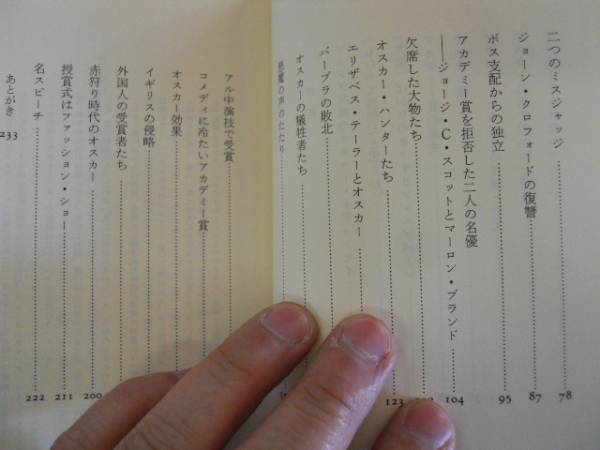 二つのミスジャッジ 78
ジョーン・クロフォードの復讐 87
ボス支配からの独立 95
アカデミー賞を拒否した二人の名優
――ジョージ・C・スコットとマーロン・ブランド 104
欠席した大物たち
オスカー・ハンターたち 123
エリザベス・テーラーとオスカー
バーブラの敗北
オスカーの犠牲者たち
悪魔の声のたたり
アル中演技で受賞
コメディに冷たいアカデミー賞
オスカー効果
イギリスの侵略
外国人の受賞者たち
赤狩り時代のオスカー 200
授賞式はファッション・ショー 211
名スピーチ 222
あとがき 233